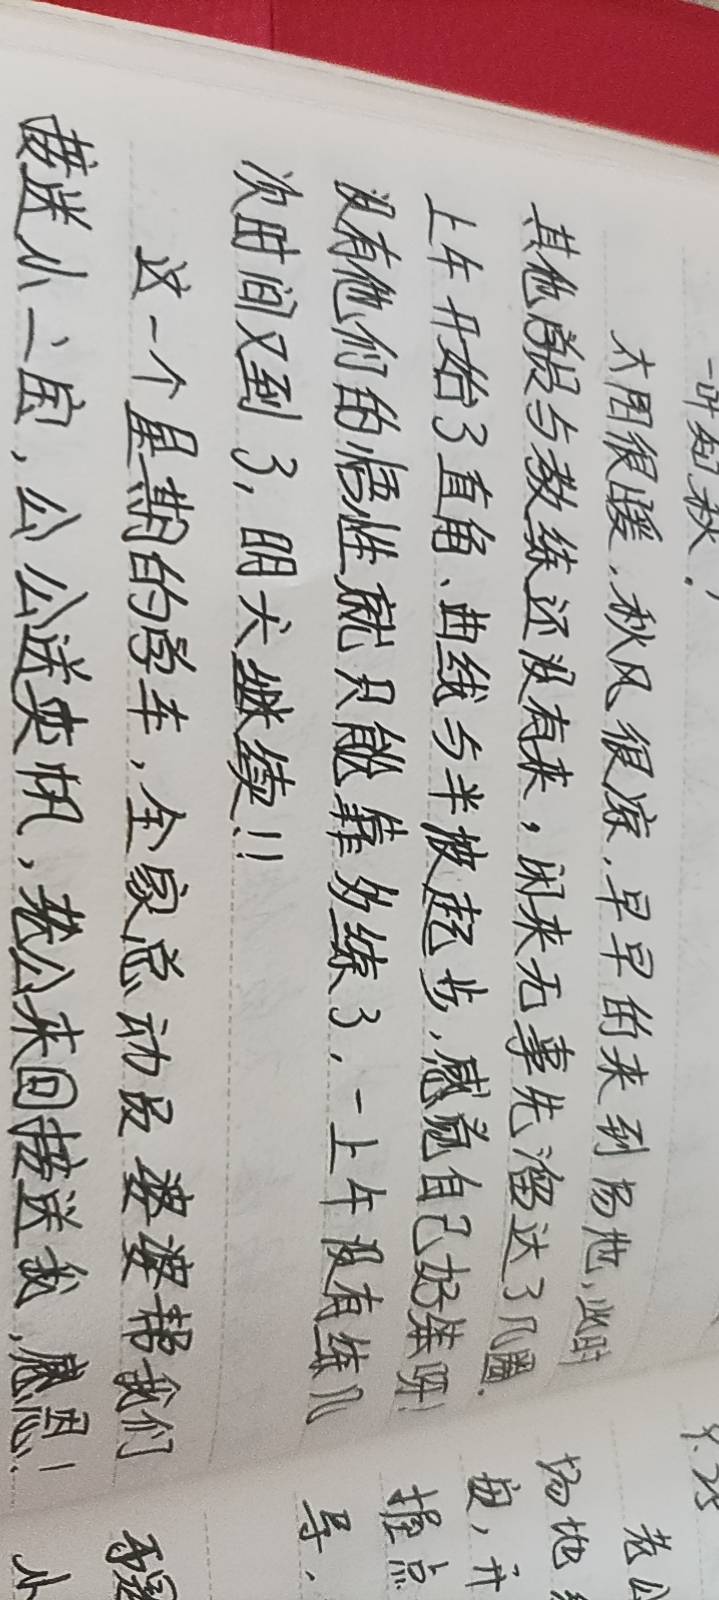 一叶知秋！
太阳很暖，秋风很凉，早早的来到场地，此时
其他学员与教练还没有来，闲来无事先溜达了几圈.
上午开始了直角、曲线与半坡起步，感觉自己好笨呀！
没有他们的悟性就只能靠多练了，一上午没有练几
次时间又到了，明天继续！！
这一个星期的学车，全家总动员婆婆帮我们
接送小二宝，公公送奕帆，老公来回接送我，感恩！
老公
场地
握点
导，
小